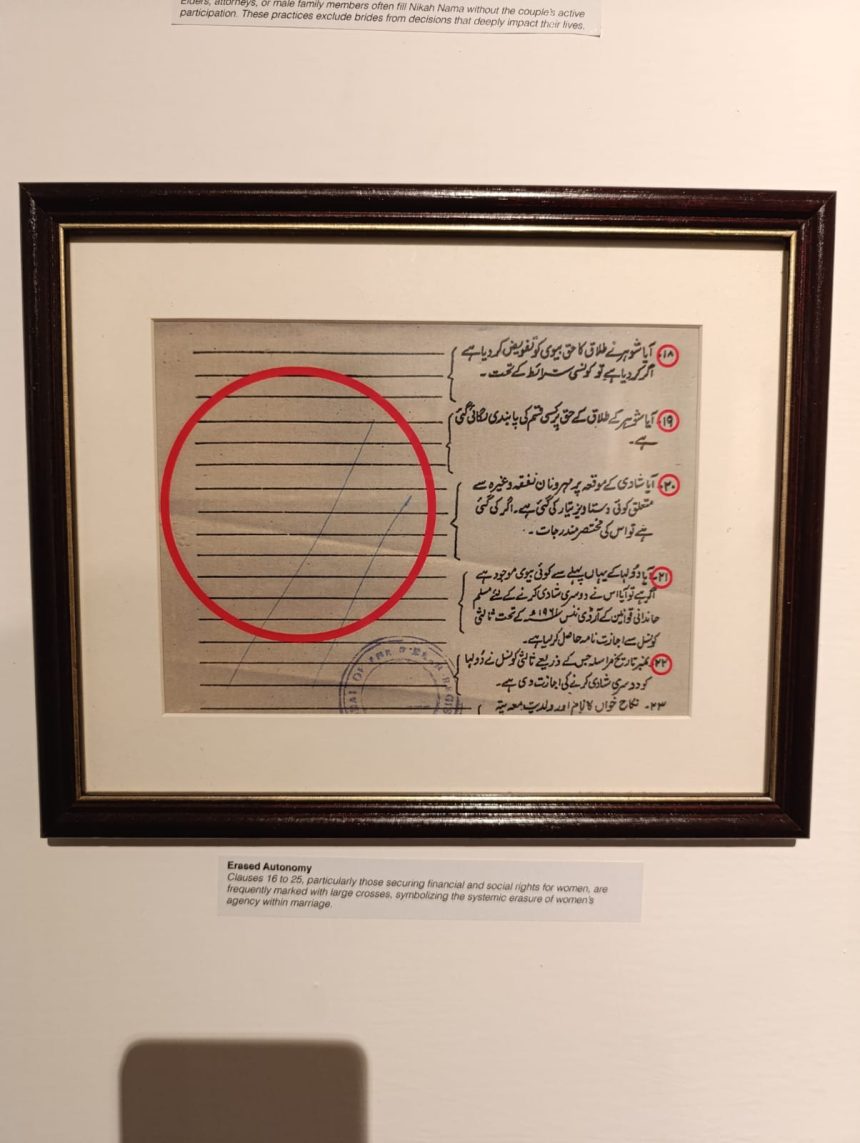 Elders, attorneys, or male family members often fill Nikah Nama without the couple's active
participation. These practices exclude brides from decisions that deeply impact their lives.
۱۸۔ آیا شوہر نے طلاق کا حق بیوی کو تفویض کر دیا ہے
اگر کر دیا ہے تو کونسی شرائط کے تحت ۔
۱۹۔ آیا شوہر کے طلاق کے حق پر کسی قسم کی پابندی لگائی گئی
ہے۔
۲۰۔ آیا شادی کے موقعہ پر مہر و نان نفقہ وغیرہ سے
متعلق کوئی دستاویز تیار کی گئی ہے۔ اگر کی گئی
ہے تو اس کی مختصر مندرجات ۔
۲۱۔ آیا دولہا کے یہاں پہلے سے کوئی بیوی موجود ہے
اگر ہے تو آیا اس نے دوسری شادی کرنے کے لئے مسلم
خاندانی قوانین کے آرڈی ننس ۱۹۶۱ء کے تحت ثالثی
کونسل سے اجازت نامہ حاصل کر لیا ہے۔
۲۲۔ نمبر تاریخ مراسلہ جس کے ذریعے ثالثی کونسل نے دولہا
کو دوسری شادی کرنے کی اجازت دی ہے۔
۲۳۔ نکاح خواں کا نام اور ولدیت معہ پتہ
Erased Autonomy
Clauses 16 to 25, particularly those securing financial and social rights for women, are
frequently marked with large crosses, symbolizing the systemic erasure of women's
agency within marriage.